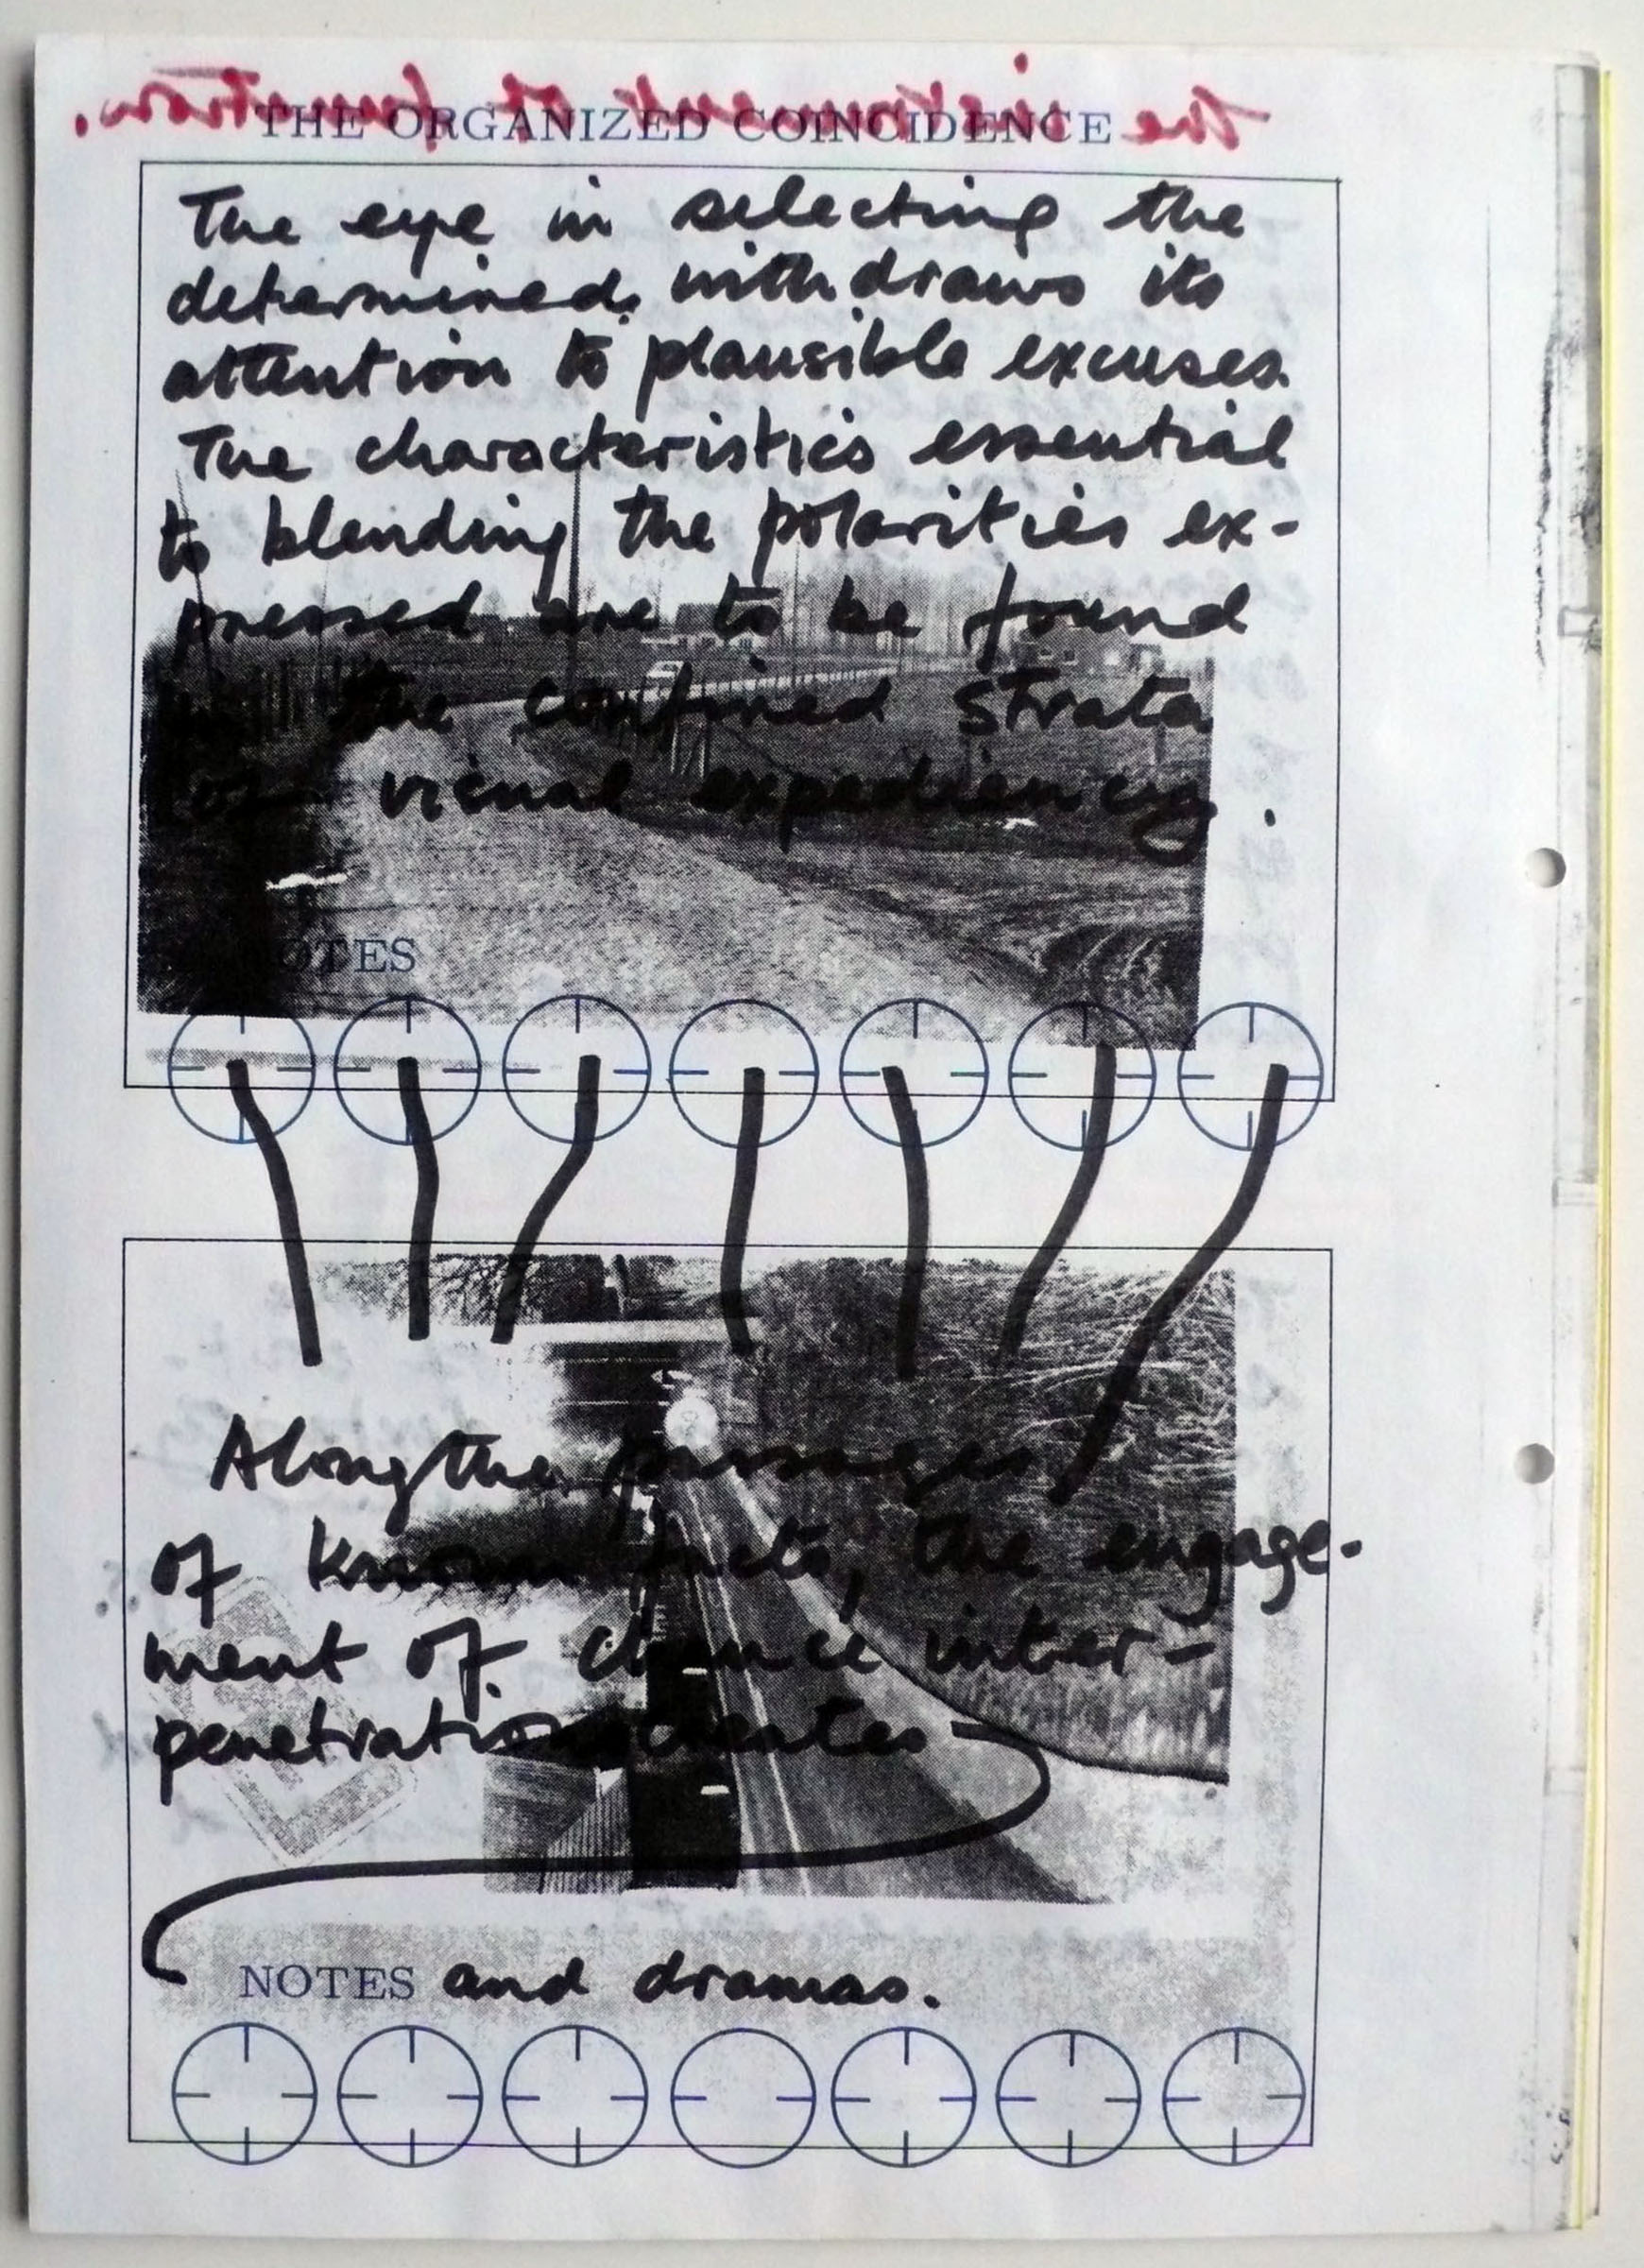 the instrument of function.
THE ORGANIZED COINCIDENCE
The eye in selecting the
determined, withdraws its
attention to plausible excuses.
The characteristics essential
to blending the polarities ex-
pressed are to be found
in the confined strata
of visual expediency.
NOTES
Along the passages
of known facts, the engage-
ment of chance inter-
penetrations creates
NOTES and dramas.